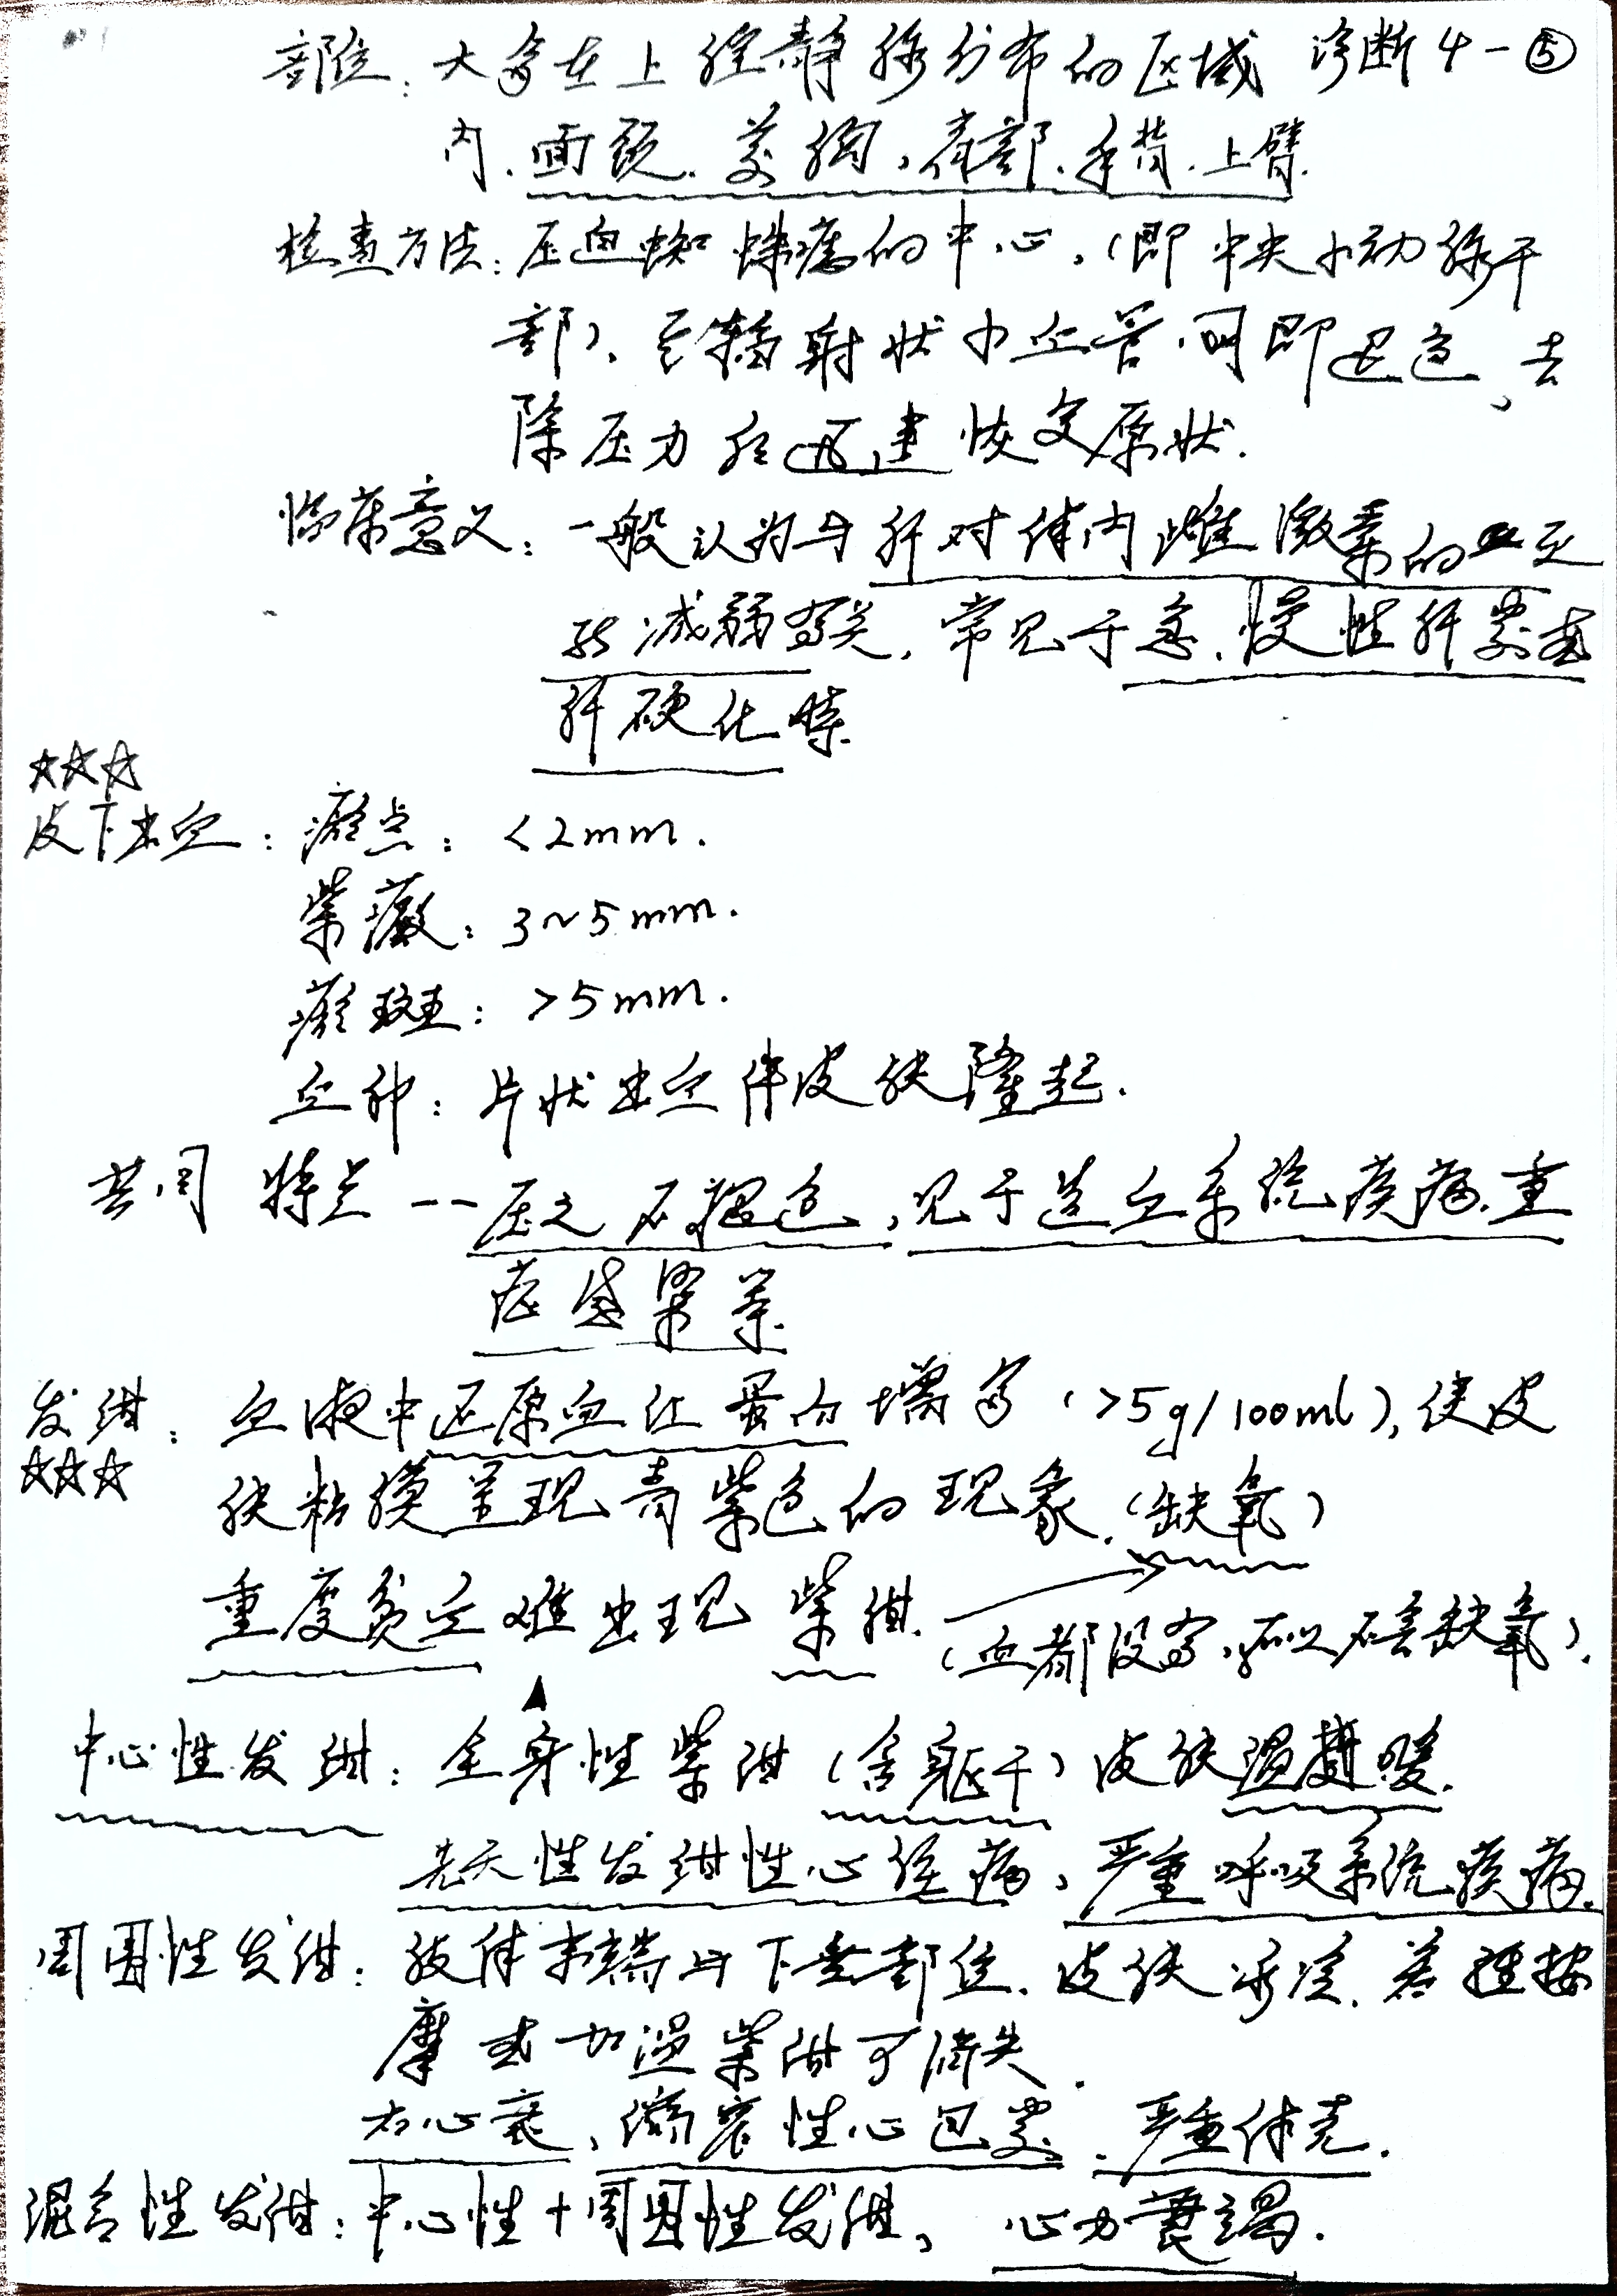 部位：大多在上腔静脉分布的区域 诊断4-⑤
内、面颈、前胸、肩部、手背、上臂.
检查方法：压迫蜘蛛痣的中心,（即中央小动脉干
部）、至辐射状小血管.可即退色、去
除压力后迅速恢复原状.
临床意义：一般认为与肝对体内雌激素的灭
活减弱有关,常见于急、慢性肝炎或
肝硬化等.
☆☆☆
皮下出血：瘀点：<2mm.
紫癜：3~5mm.
瘀斑：>5mm.
血肿：片状出血伴皮肤隆起.
共同特点--压之不褪色,见于造血系统疾病.重
症感染等.
发绀：血液中还原血红蛋白增多（>5g/100ml),使皮
☆☆☆
肤粘膜呈现青紫色的现象.(缺氧)
重度贫血难出现紫绀.
(血都没多,所以不会缺氧).
中心性发绀：全身性紫绀(含躯干)皮肤温暖.
先天性发绀性心脏病、严重呼吸系统疾病.
周围性发绀：肢体末端与下垂部位.皮肤冰冷.若经按
摩或加温紫绀可消失.
右心衰、缩窄性心包炎、严重休克.
混合性发绀：中心性+周围性发绀、心力衰竭.